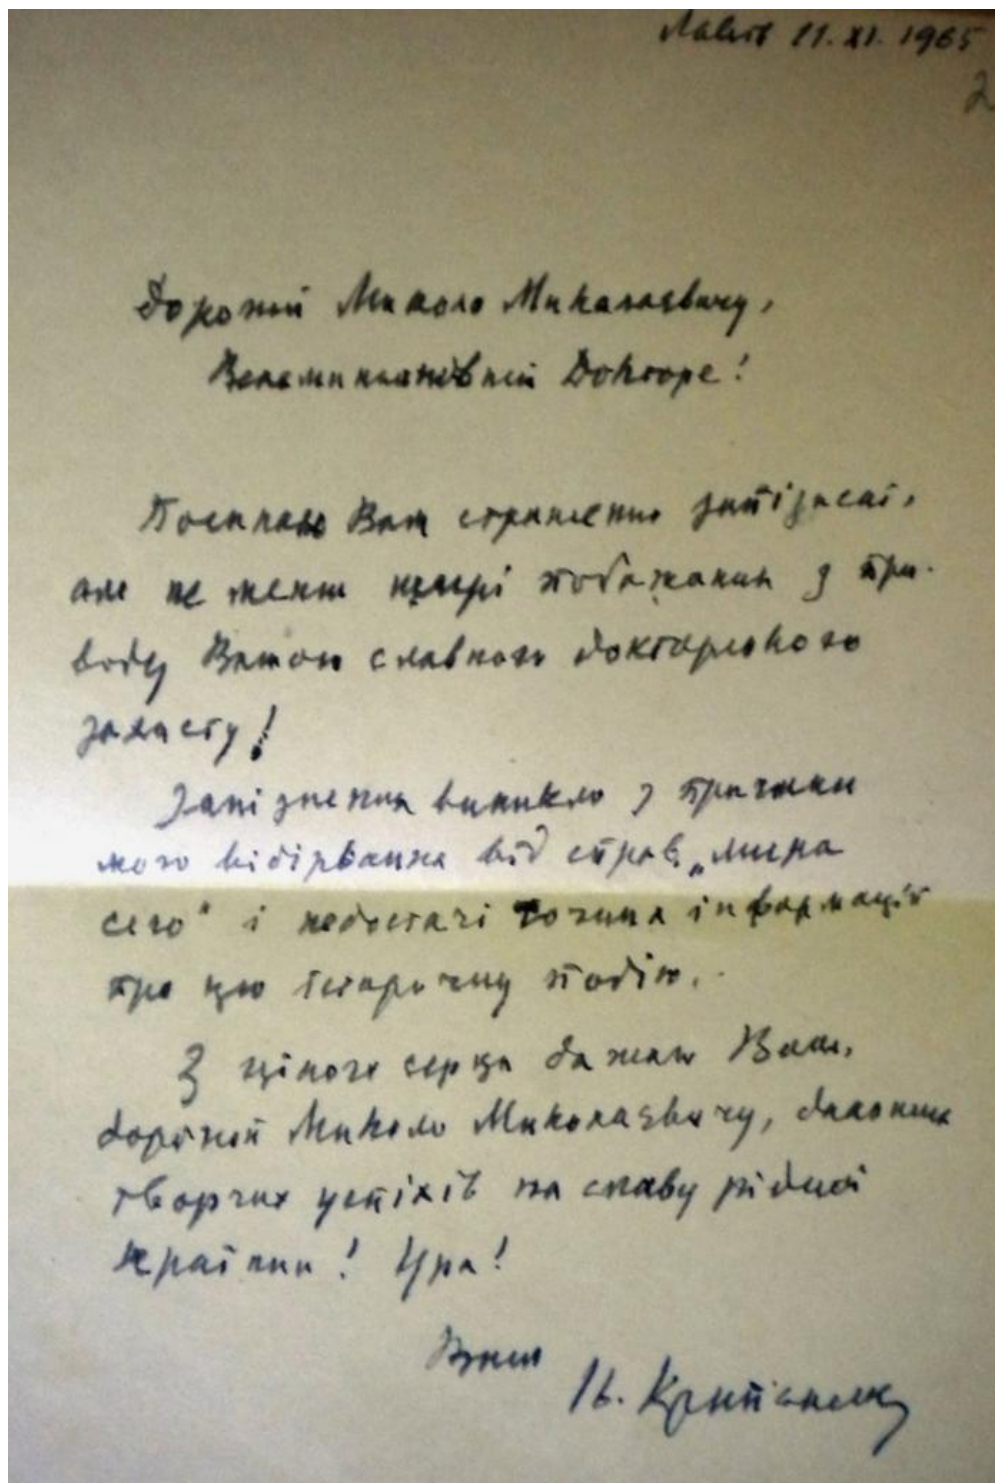 Львів 11. XI. 1965
2
Дорогий Миколо Миколаєвичу,
Вельмишановний Докторе!
Посилаю Вам страшенно запізнені,
але не менш щирі побажання з при-
воду Вашого славного докторського
захисту!
Запізнення виникло з причини
мого відірвання від справ „мира
сего" і недостачі точних інформацій
про цю історичну подію.
З цілого серця бажаю Вам,
дорогий Миколо Миколаєвичу, дальших
творчих успіхів на славу рідної
країни! Ура!
Ваш
Ів. Крип'якевич